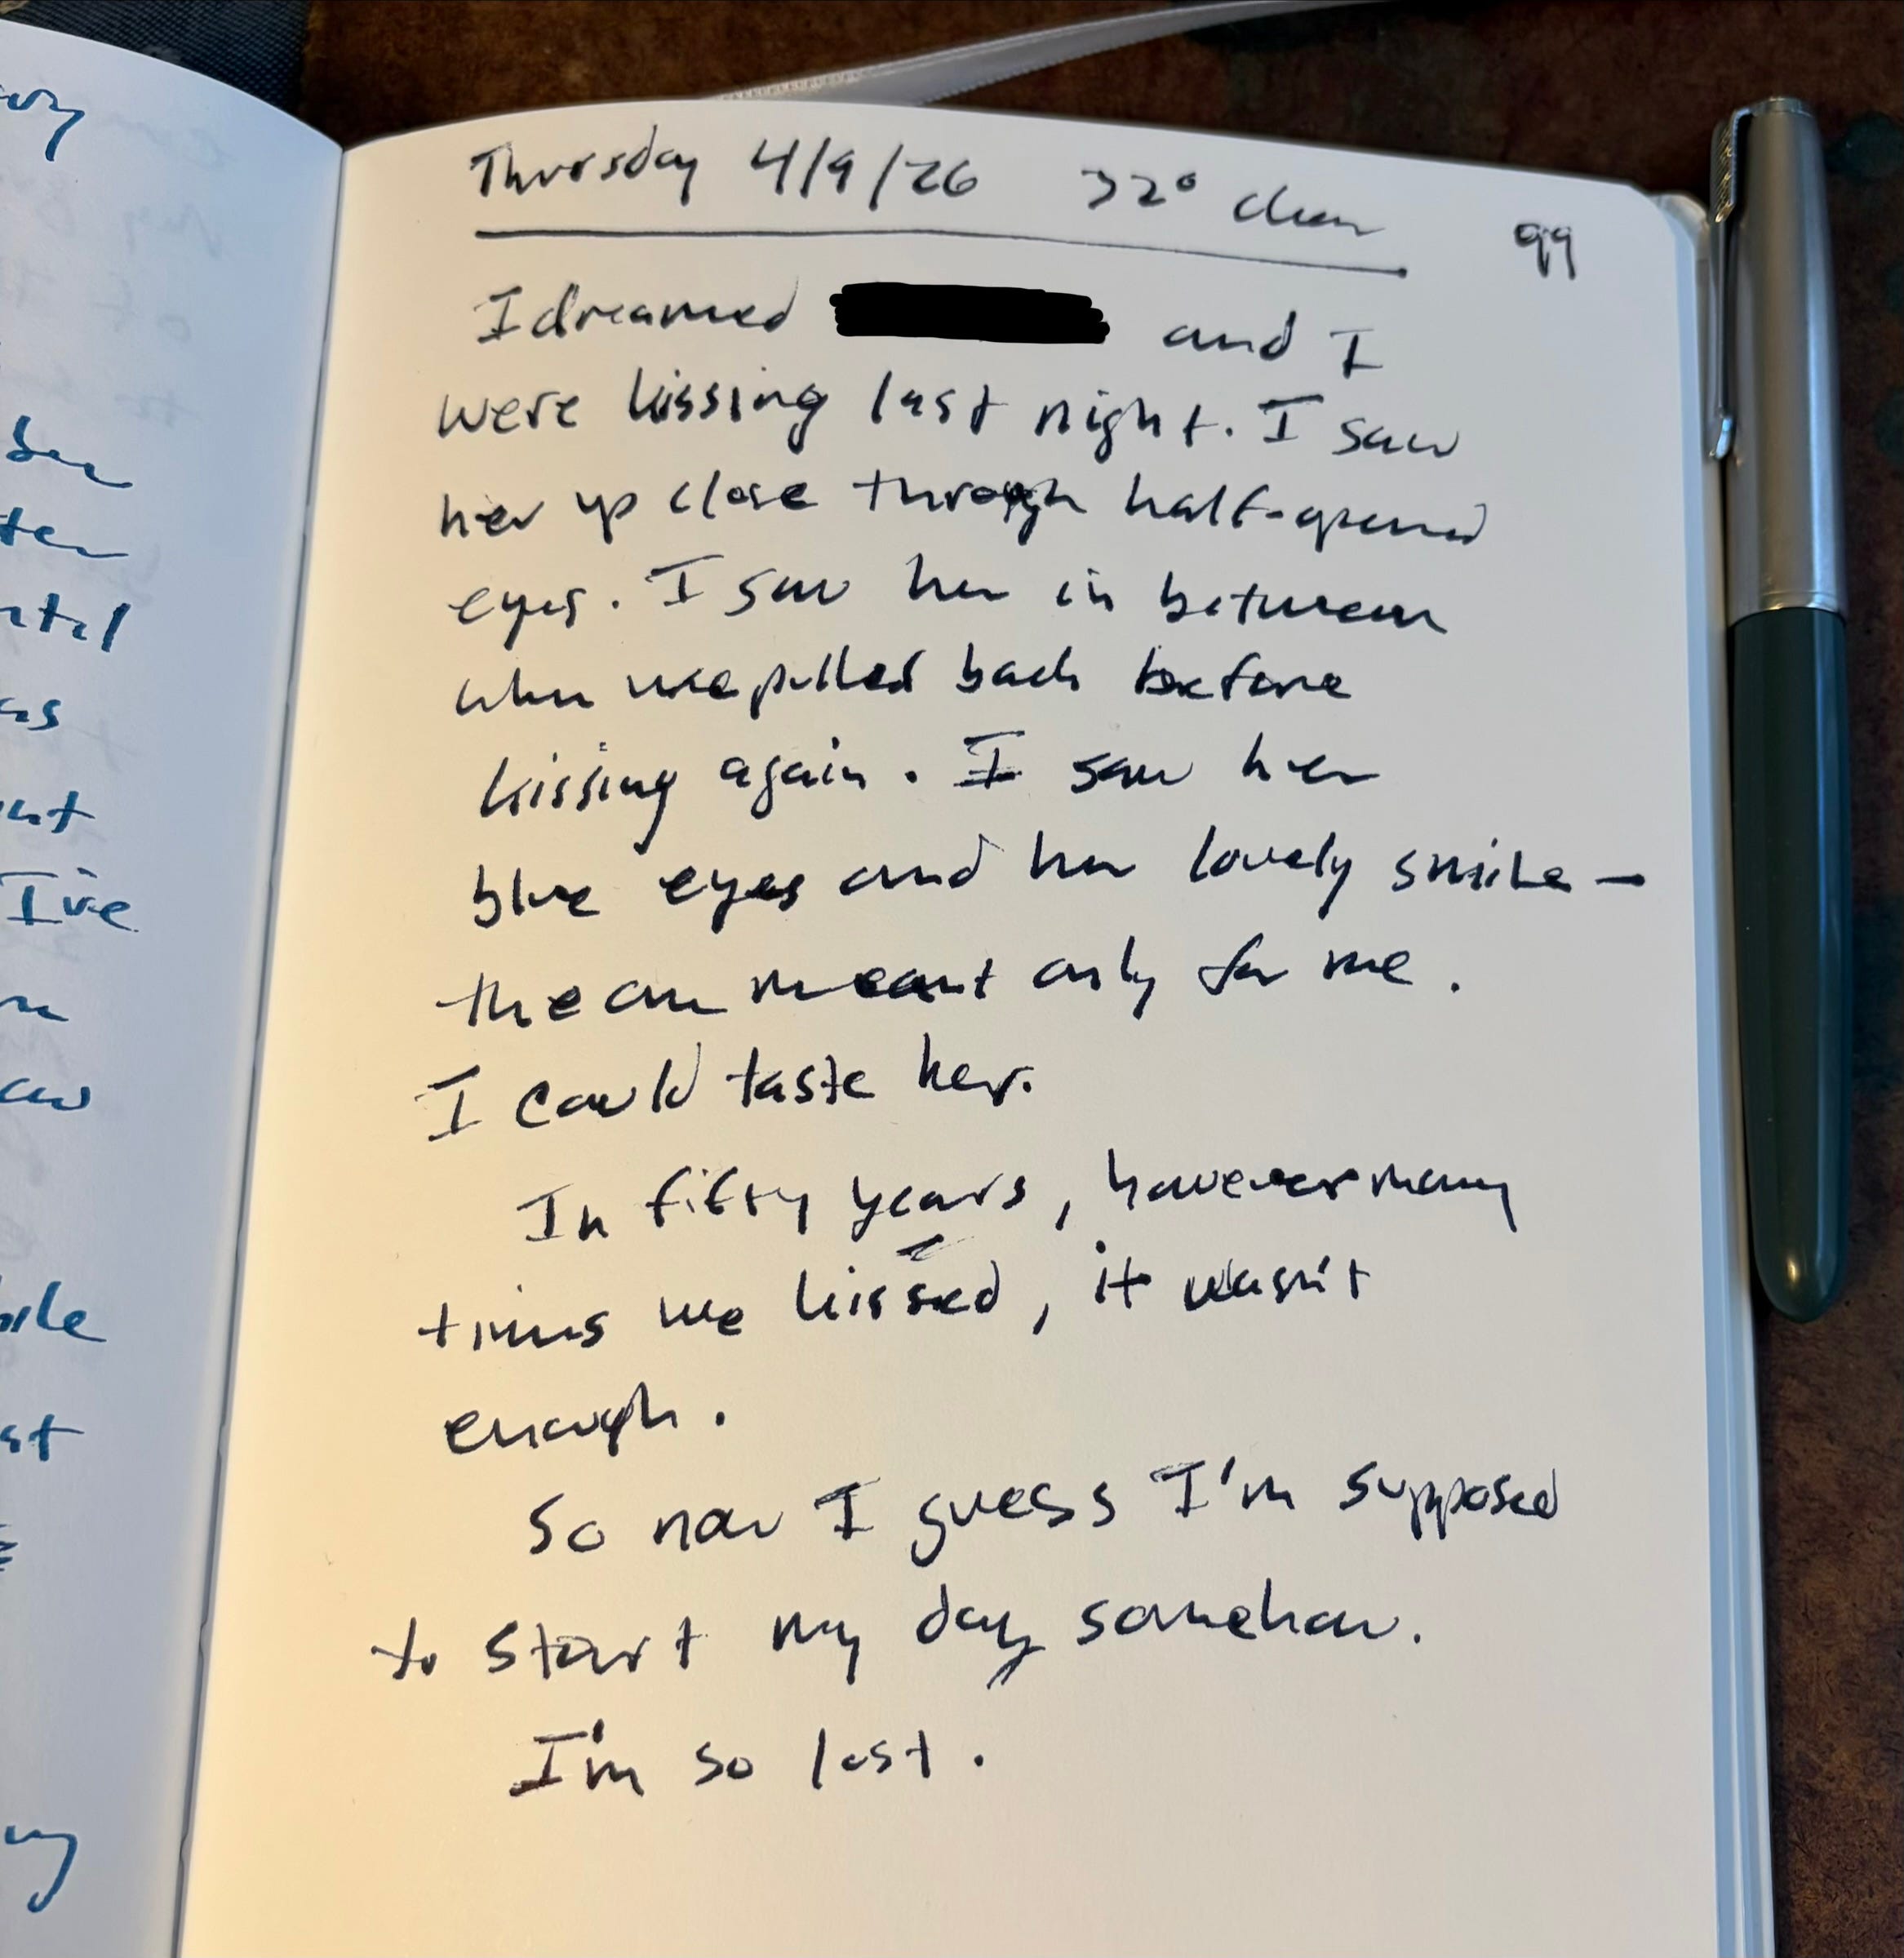 Thursday 4/9/26 32° clear
99
I dreamed and I
were kissing last night. I saw
her up close through half-opened
eyes. I saw her in between
when we pulled back before
kissing again. I saw her
blue eyes and her lovely smile—
the one meant only for me.
I could taste her.
In fifty years, however many
times we kissed, it wasn't
enough.
So now I guess I'm supposed
to start my day somehow.
I'm so lost.
I've